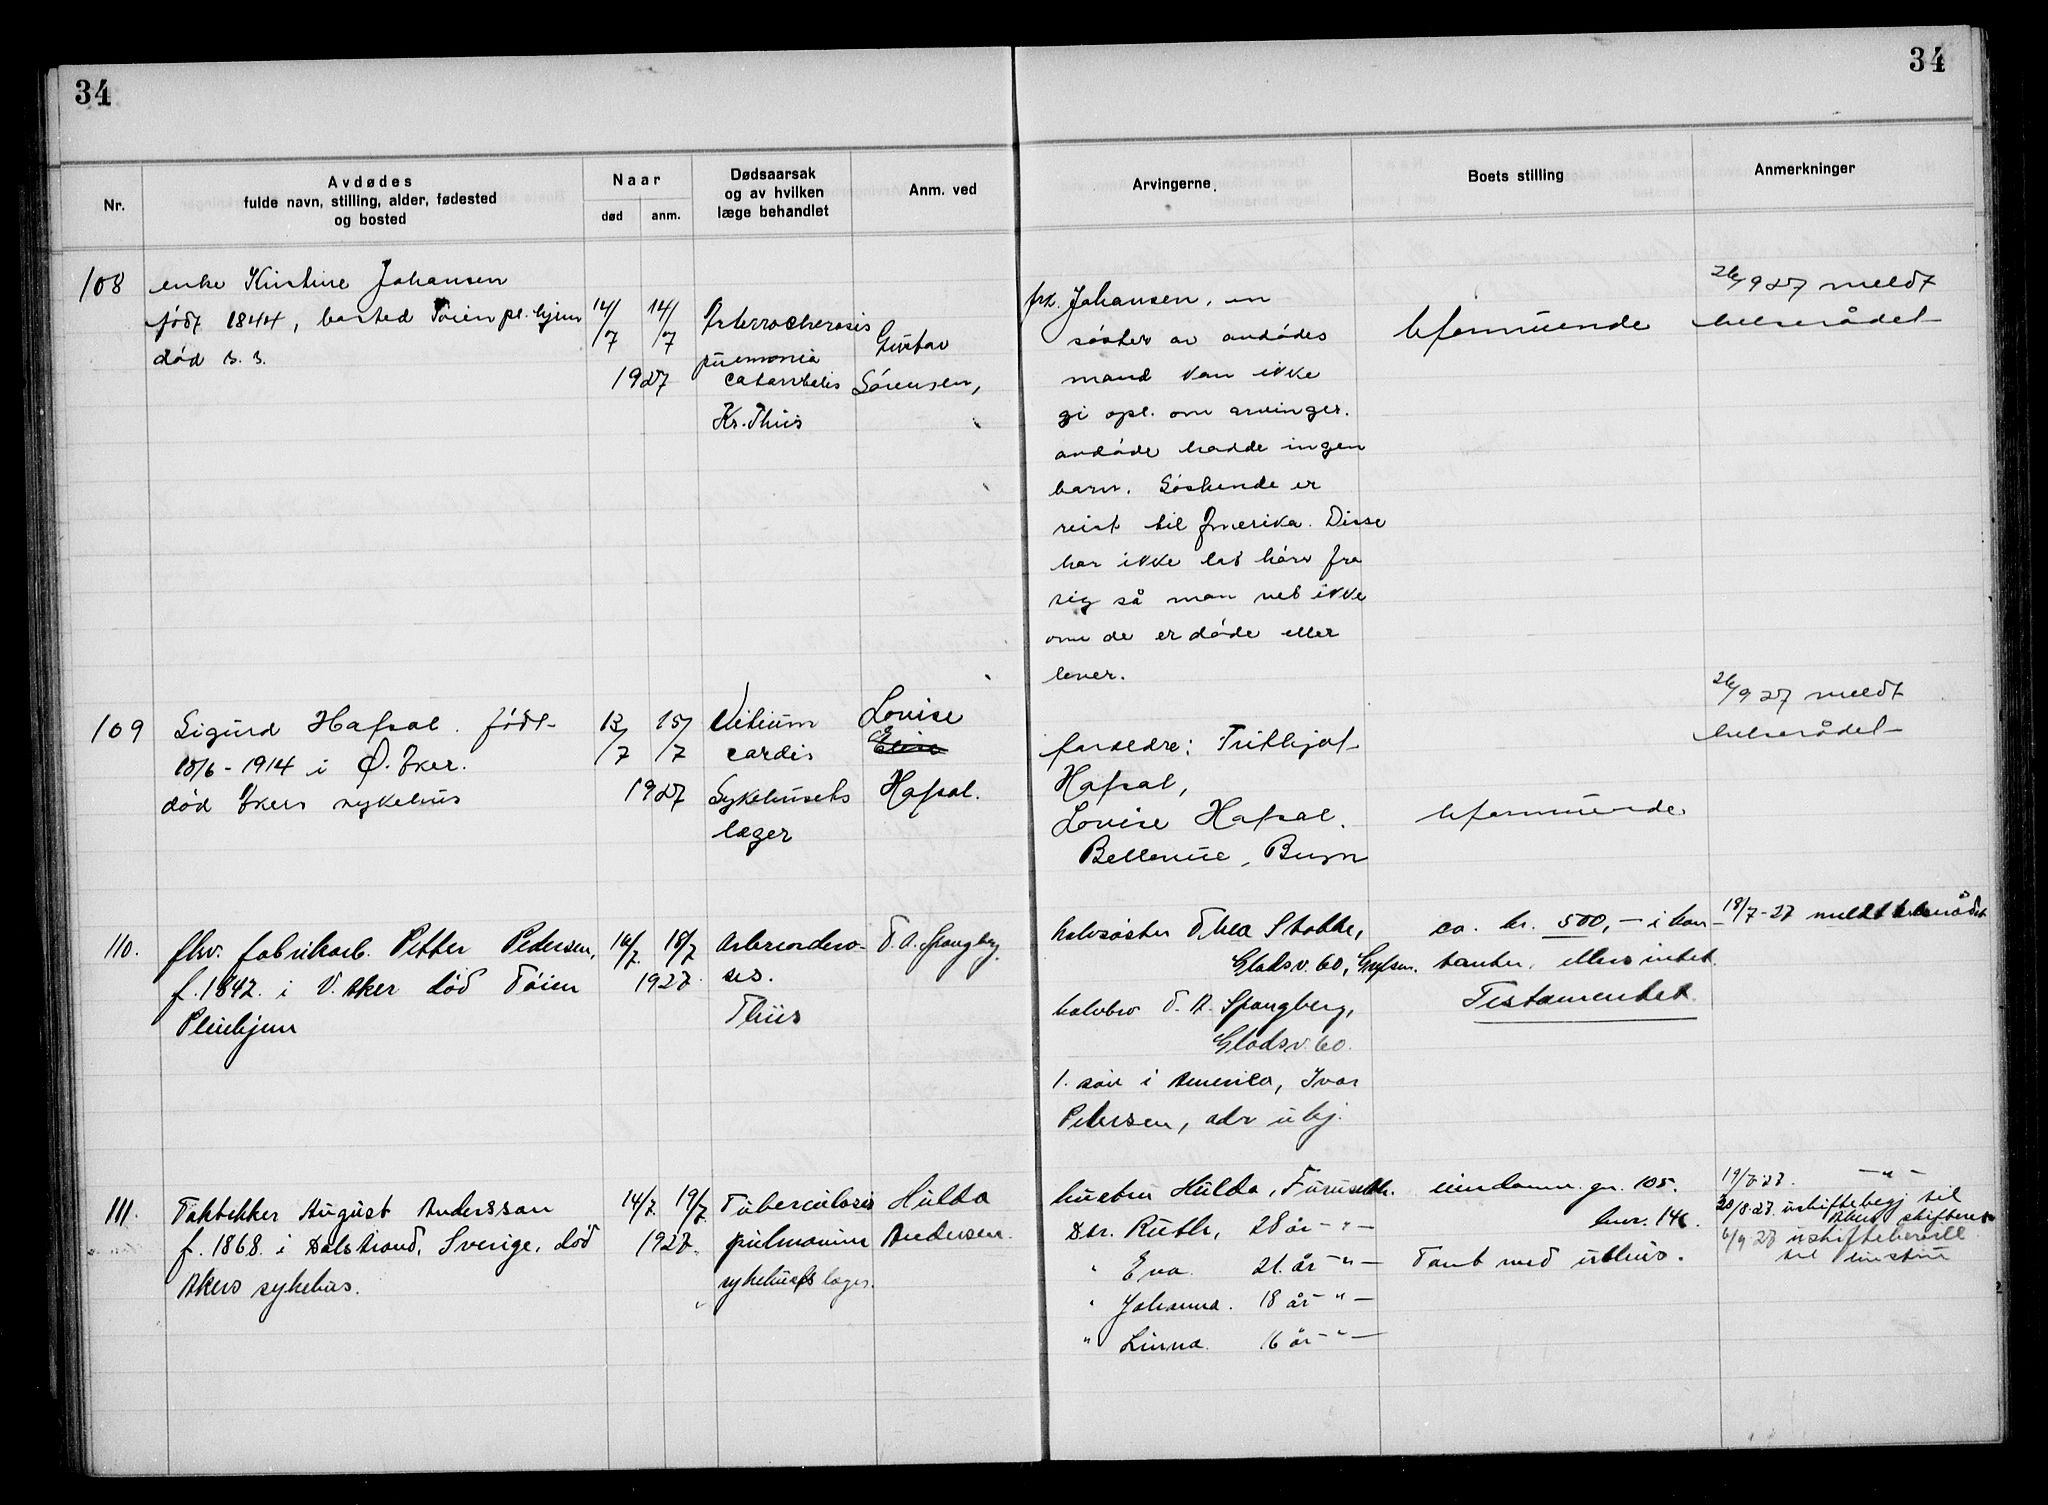 34
34
Nr.
Avdødes
fulde navn, stilling, alder, fødested
og bosted
Naar
død
anm.
Dødsaarsak
og av hvilken
læge behandlet
Anm. ved
Arvingerne
Boets stilling
Anmerkninger
108
enke Kristine Johansen
født 1844, bosted Tøien pl. hjem
død s. s.
14/7 14/7
1927
pneumonia
catarrhalis
Kr. Thiis
Gustav
Sørensen,
frk. Johansen, en
søster av avdødes
mand kan ikke
gi opl. om arvinger.
avdøde hadde ingen
barn. Søskende er
reist til Amerika. Disse
har ikke lat høre fra
sig så man vet ikke
om de er døde eller
lever.
uformuende
26/9 27 meldt
helserådet
109
Sigurd Hafsal. født
10/6 - 1914 i Ø. Aker.
død Akers sykehus
13/7 15/7
1927
Vitium
cordis
Sykehusets
læger
Lovise
Hafsal.
foreldre: Frithjof
Hafsal,
Lovise Hafsal.
Bellevue, Bryn
uformuende
26/9 27 meldt
helserådet
110.
fhv. fabrikarb. Petter Pedersen,
f. 1847. i V. Aker død Tøien
Pleiehjem
16/7. 18/7
1927.
Arteriosclero-
sis.
Thiis
T. A. Spangberg.
halvsøster Thea Stokke,
Gladsv. 60, Grefsen.
halvbro T. A. Spangberg,
Gladsv. 60.
1. søn i Amerika, Ivar
Petersen, adr ubkj.
ca. kr. 500,- i kon-
tanter, ellers intet.
Testamentet
18/7-27 meldt helserådet
111.
Taktekker August Anderssan
f. 1868. i Dalstrand, Sverige, død
Akers sykehus.
14/7. 19/7.
1927.
Tuberculosis
pulmonum
sykehusets læger.
Hulda
Andersen.
hustru Hulda, Furuset.
Dtr. Ruth, 28 år - " -
" Eva. 21. år - " -
" Johanna. 18 år - " -
" Linna. 16 år - " -
eiendom. gr. 105.
bnr. 146.
Tomt med uthus.
19/7-27. - " -
30/8-27. uskiftebegj til
Akers skifterett
6/9-27 uskiftebevill.
til enken